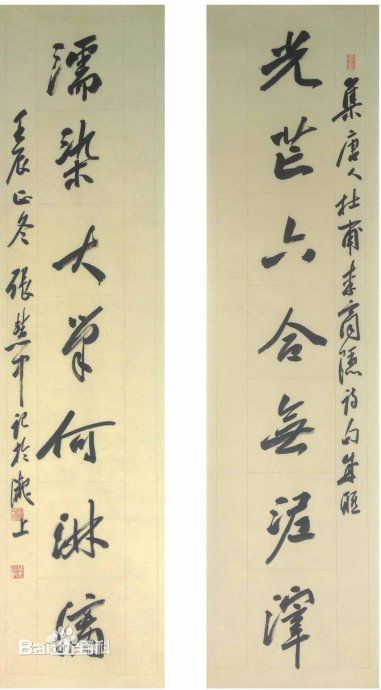 集唐人杜甫李商隱詩句成聯
光芒六合無泥滓
濡染大筆何淋漓
壬辰正冬張慧中記於上
Baidu百科